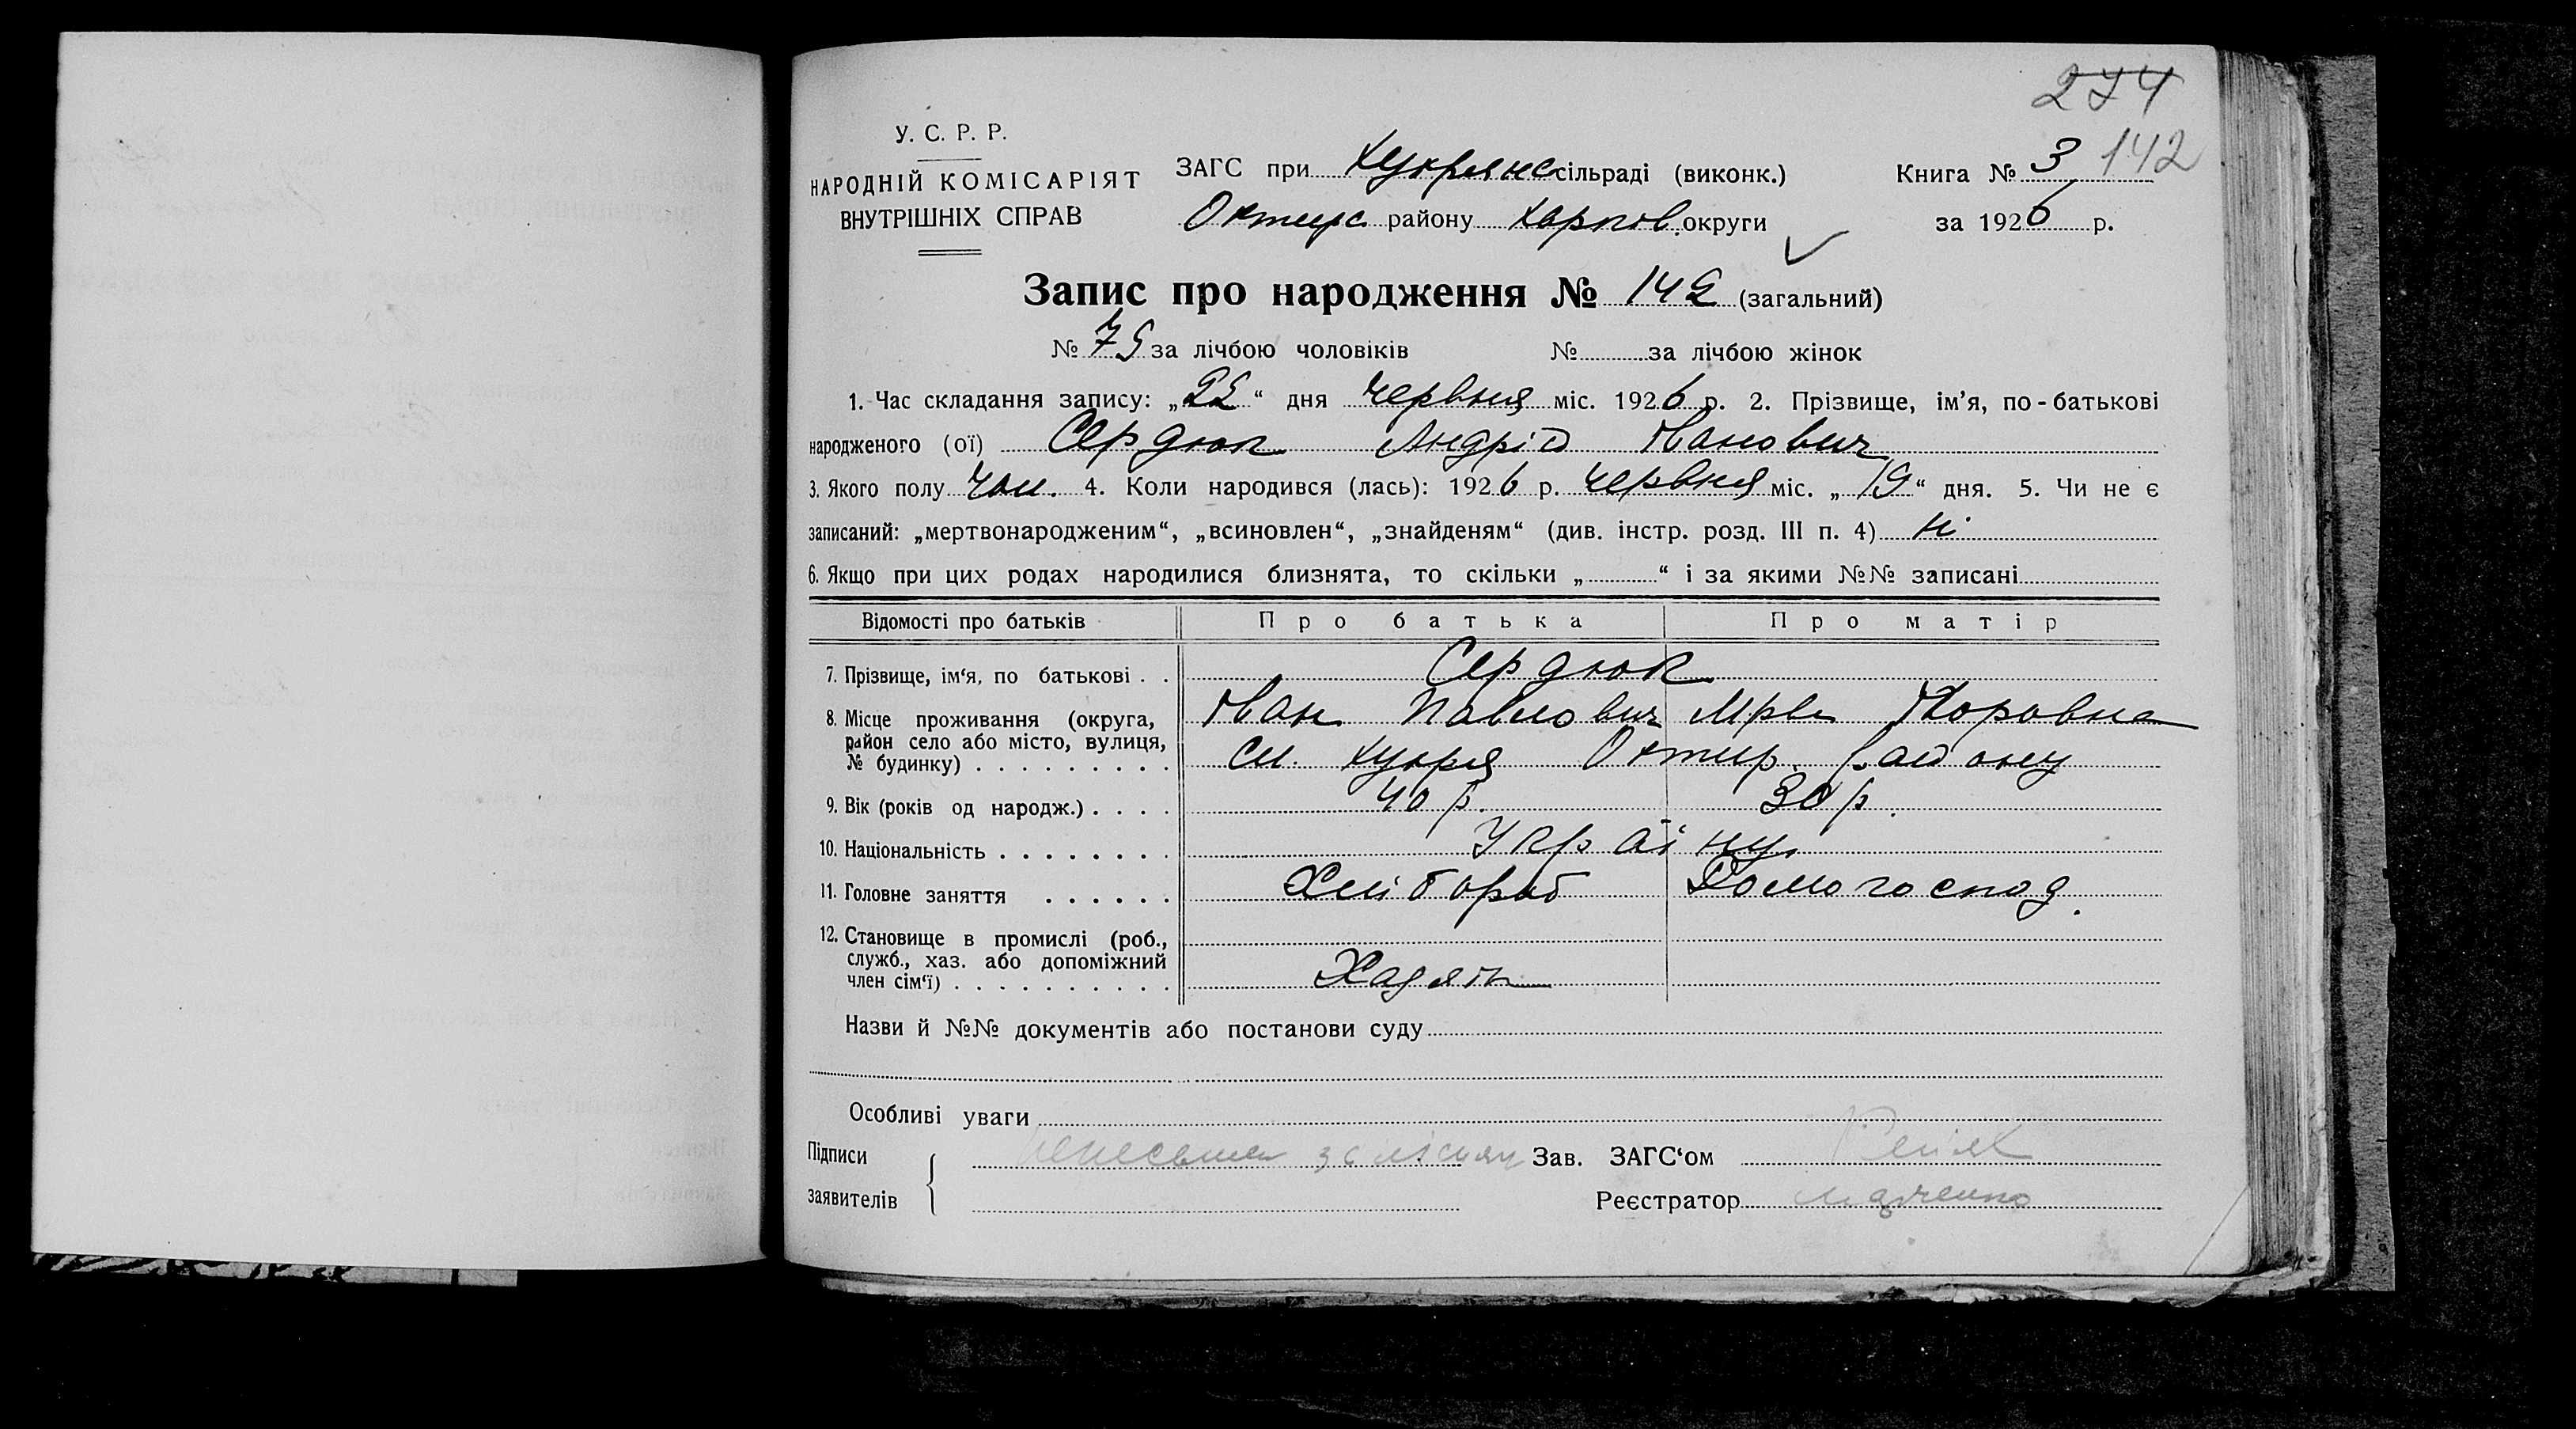 274
У. С. Р. Р.
НАРОДНІЙ КОМІСАРІЯТ
ВНУТРІШНІХ СПРАВ
ЗАГС при Хухрянс сільраді (виконк.)
Охтирс району Харків. округи
Книга № 3 142
за 1926 р.
Запис про народження № 142 (загальний)
№ 75 за лічбою чоловіків № за лічбою жінок
1. Час складання запису: „22“ дня червня міс. 1926 р. 2. Прізвище, ім’я, по-батькові
народженого (ої) Сердюк Андрій Іванович
3. Якого полу чол. 4. Коли народився (лась): 1926 р. червня міс. „19“ дня. 5. Чи не є
записаний: „мертвонародженим“, „всиновлен“, „знайденям“ (див. інстр. розд. III п. 4) ні
6. Якщо при цих родах народилися близнята, то скільки „ “ і за якими №№ записані
Відомості про батьків Про батька Про матір
7. Прізвище, ім‘я, по батькові . . Сердюк
8. Місце проживання (округа, Іван Павлович
район село або місто, вулиця,
№ будинку) . . . . . . . . . сл. Хухря Охтир. району
9. Вік (років од народж.) . . . . 40 р. 30 р.
10. Національність . . . . . . . . Україну
11. Головне заняття . . . . . . Хлібороб Домогоспод.
12. Становище в промислі (роб.,
служб., хаз. або допоміжний
член сім‘ї) . . . . . . . . . . Хазяін
Назви й №№ документів або постанови суду
Особливі уваги
Підписи
заявителів
Зав. ЗАГС‘ом
Реєстратор